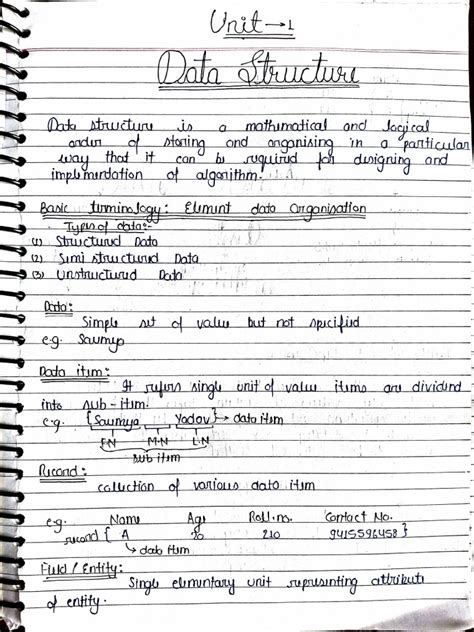 Unit → 1
Data Structure
Data structure is a mathematical and logical
order of storing and organising in a particular
way that it can be required for designing and
implemendation of algorithm.
Basic terminology: Element data Organisation
Types of data:-
(1) Structured Data
(2) Simi structured Data
(3) Unstructured Data
Data:
Simple set of value but not specified
e.g. Saumya
Data item:
It refers single unit of value items are dividind
into sub-item.
e.g. {Saumya Yadav} → data item
F.N M.N L.N
Sub item
Record:
collection of various data item
e.g. Name Age Roll.no. Contact No.
record { A 20 210 9415596458 }
→ data item
Field / Entity:
Single elementary unit representing attribute
of entity.